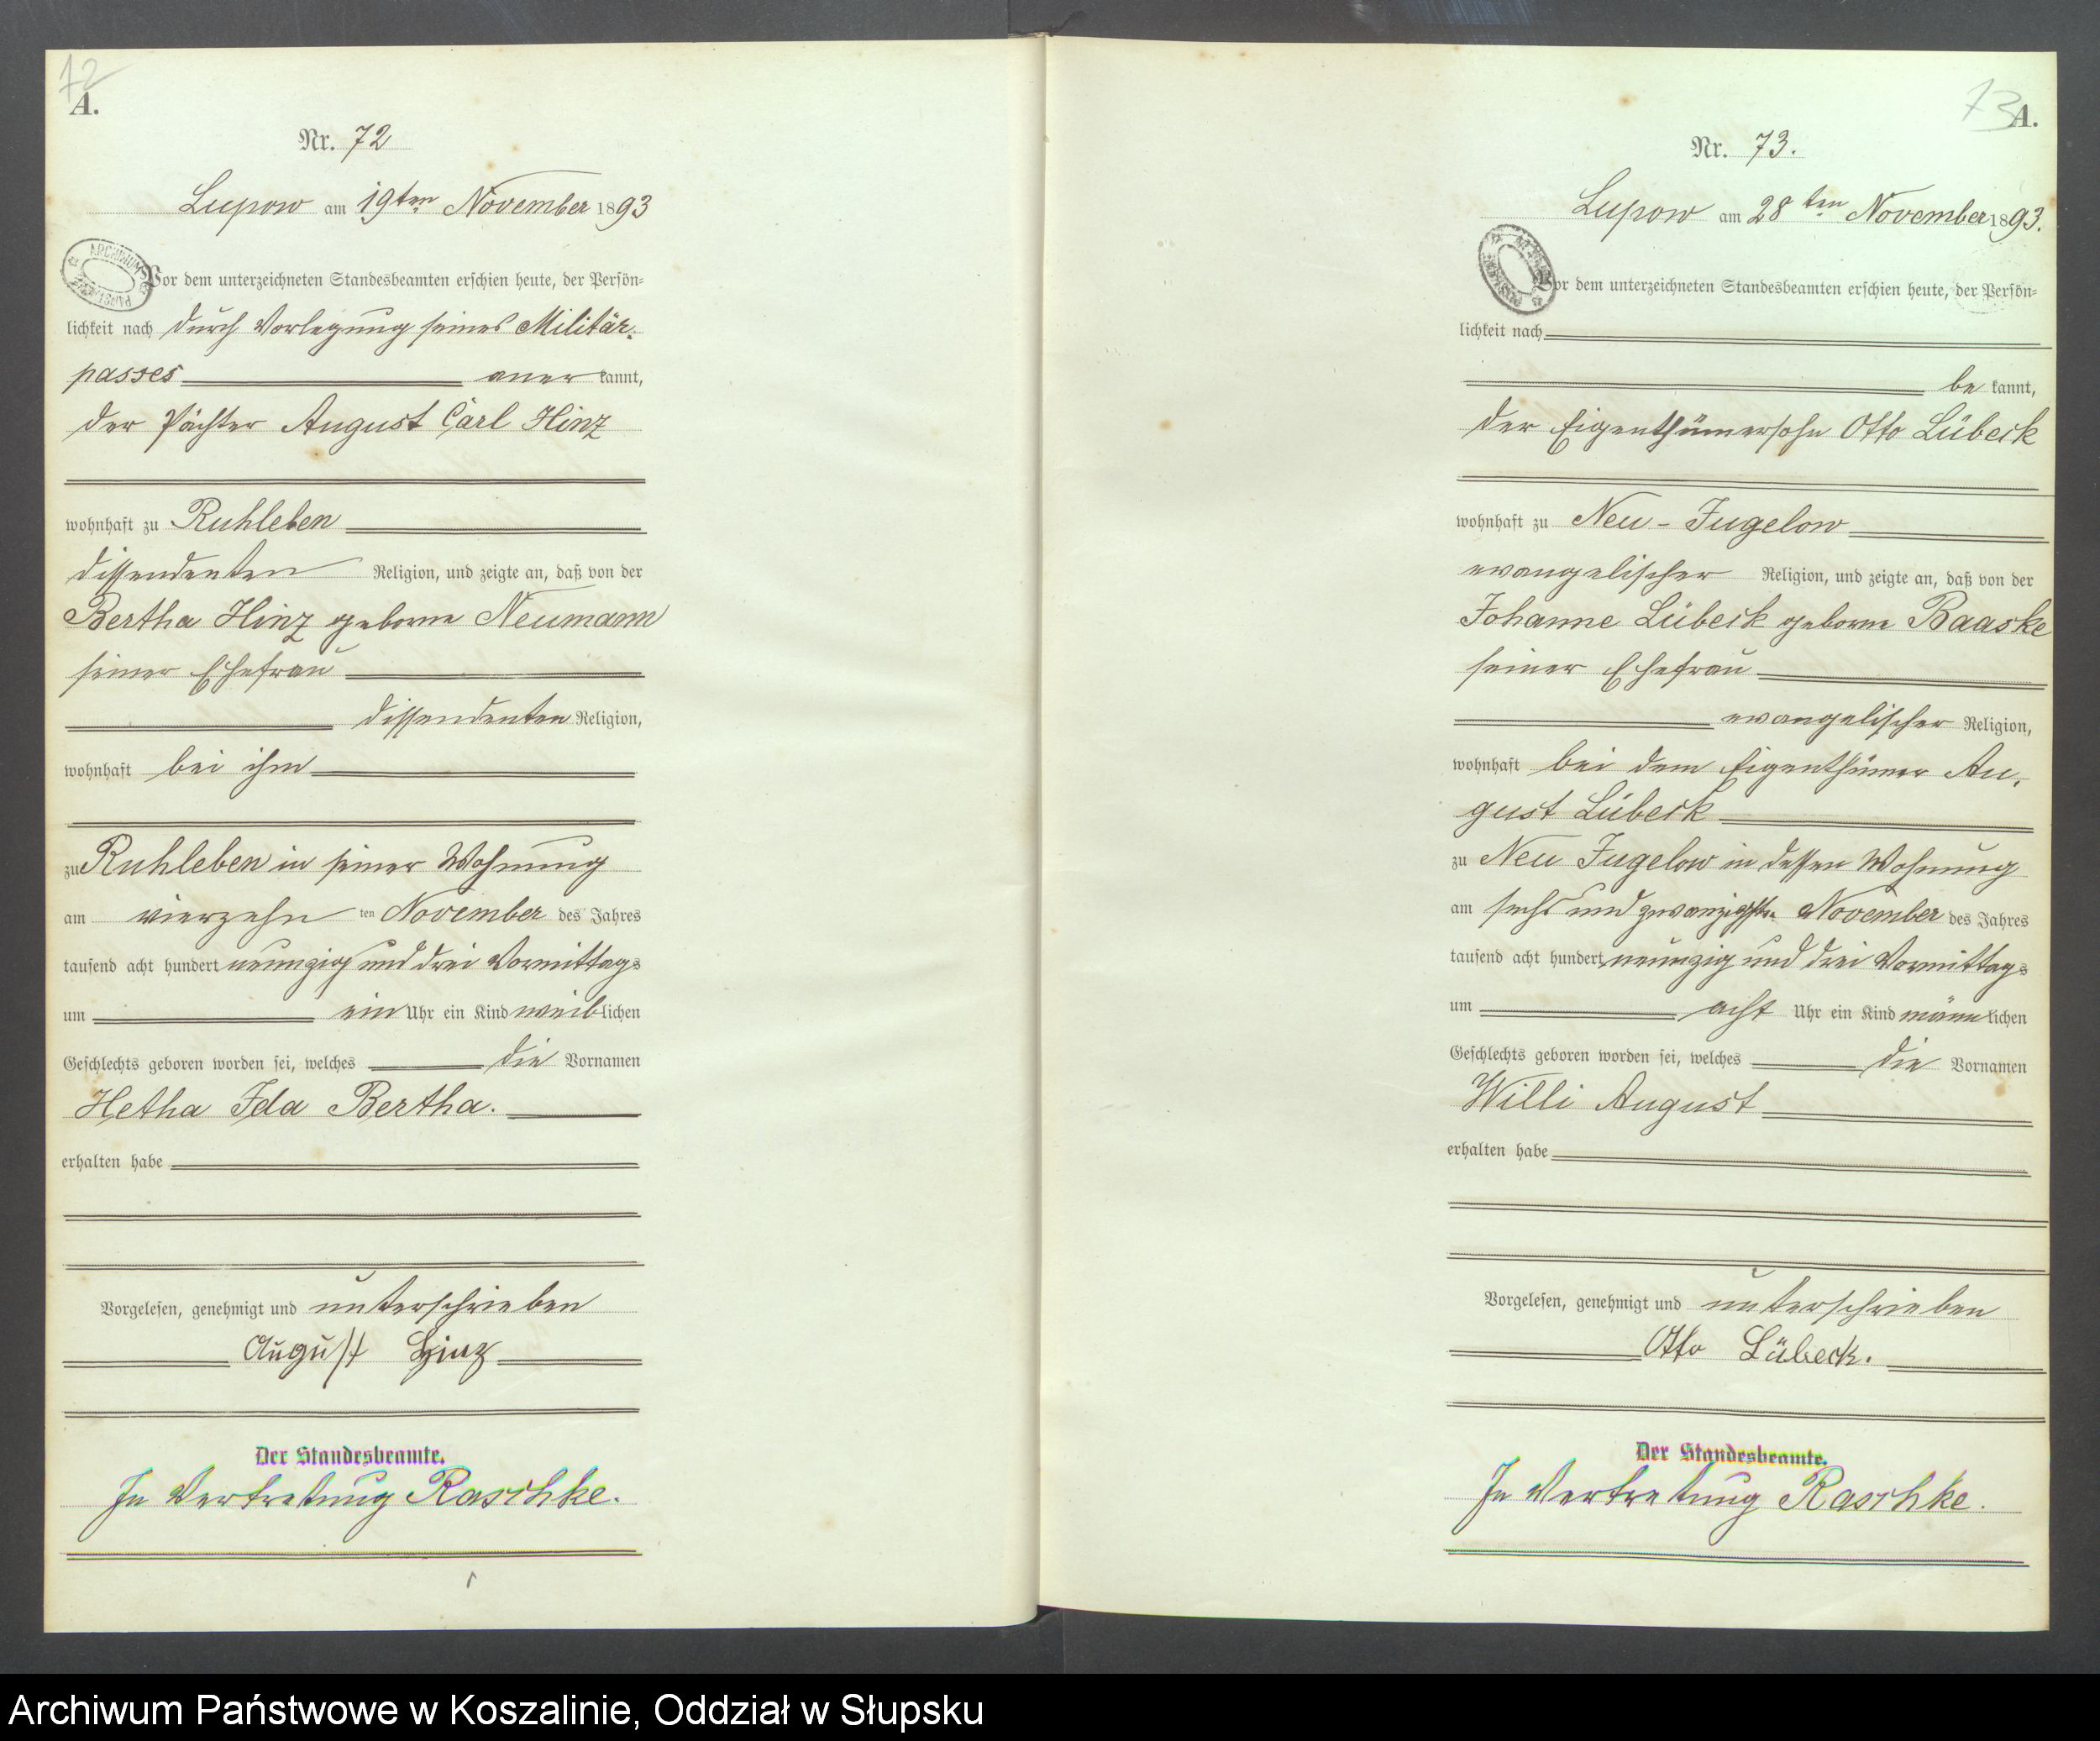 72
A.
Nr. 72
Lupow am 19ten November 1893
ARCHIWUM
Vor dem unterzeichneten Standesbeamten erschien heute, der Persön=
lichkeit nach durch Vorlegung seines Militär-
passes aner kannt,
der Pächter August Carl Hinz
wohnhaft zu Ruhleben
dissendenten Religion, und zeigte an, daß von der
Bertha Hinz geborne Neumann
seiner Ehefrau
dissendenten Religion,
wohnhaft bei ihm
zu Ruhleben in seiner Wohnung
am vierzehn ten November des Jahres
tausend acht hundert neunzig und drei Vormittags
um ein Uhr ein Kind weiblichen
Geschlechts geboren worden sei, welches die Vornamen
Hetha Ida Bertha.
erhalten habe
Vorgelesen, genehmigt und unterschrieben
August Hinz
Der Standesbeamte.
In Vertretung Raschke.
73
A.
Nr. 73.
Lupow am 28ten November 1893.
Vor dem unterzeichneten Standesbeamten erschien heute, der Persön=
lichkeit nach
be kannt,
der Eigenthümersohn Otto Lübeck
wohnhaft zu Neu-Jugelow
evangelischer Religion, und zeigte an, daß von der
Johanne Lübeck geborne Baaske
seiner Ehefrau
evangelischer Religion,
wohnhaft bei dem Eigenthümer Au-
gust Lübeck
zu Neu Jugelow in dessen Wohnung
am sechs und zwanzigsten November des Jahres
tausend acht hundert neunzig und drei Vormittags
um acht Uhr ein Kind männlichen
Geschlechts geboren worden sei, welches die Vornamen
Willi August
erhalten habe
Vorgelesen, genehmigt und unterschrieben
Otto Lübeck.
Der Standesbeamte.
In Vertretung Raschke.
Archiwum Państwowe w Koszalinie, Oddział w Słupsku